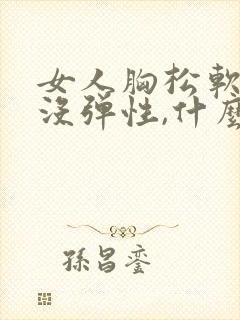 女人胸松軟
沒彈性,什麼
孫昌鑾